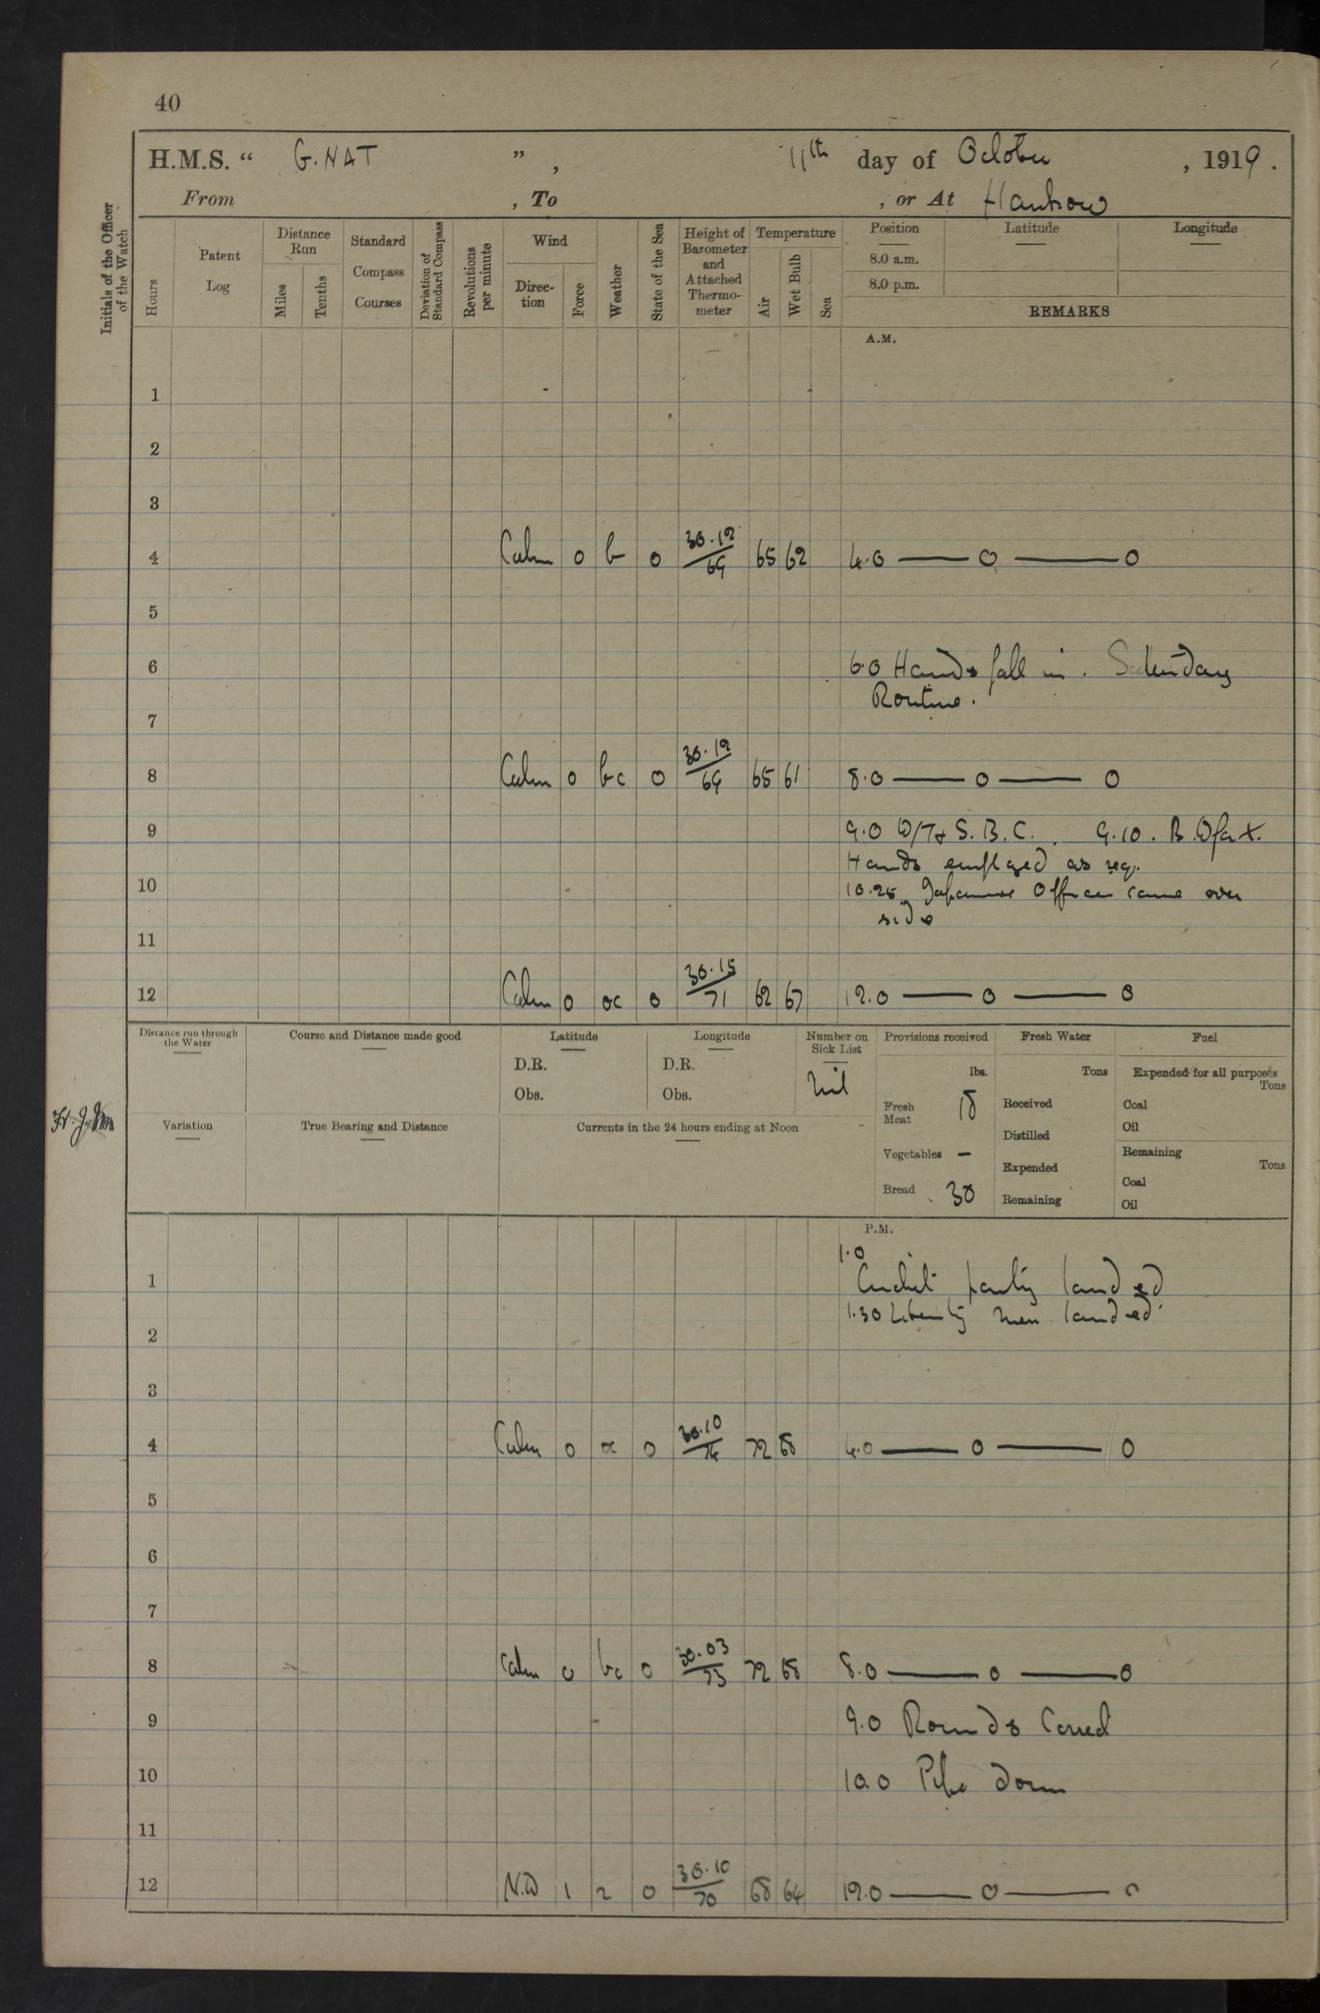 40
H.M.S. “ GNAT ” , 11th day of October , 1919 .
From , To , or At Hankow
Initials of the Officer of the Watch
Hours
Patent Log
Distance Run
Miles
Tenths
Standard Compass Courses
Deviation of Standard Compass
Revolutions per minute
Wind
Direction
Force
Weather
State of the Sea
Height of Barometer and Attached Thermometer
Temperature
Air
Wet Bulb
Sea
Position
8.0 a.m.
8.0 p.m.
Latitude
Longitude
REMARKS
A.M.
1
2
3
4 Calm 0 b 0 30.12/69 65 62 4.0 — 0 — 0
5
6 6.0 Hands fall in. Saturday
Routine.
7
8 Calm 0 bc 0 30.12/69 65 61 8.0 — 0 — 0
9 9.0 W/T & S.B.C. 9.10. B.
Hands employed as req.
10 10.25 Japanese Officer came over
side
11
12 Calm 0 oc 0 30.15/71 62 67 12.0 — 0 — 0
Distance run through the Water
Course and Distance made good
Latitude
D.R.
Obs.
Longitude
D.R.
Obs.
Number on Sick List
Nil
Provisions received
lbs.
Fresh Meat 18
Vegetables –
Bread 30
Fresh Water
Tons
Received
Distilled
Expended
Remaining
Fuel
Expended for all purposes
Tons
Coal
Oil
Remaining
Tons
Coal
Oil
Variation
True Bearing and Distance
Currents in the 24 hours ending at Noon
P.M.
1.0
1 Cricket party landed
1.30 Liberty men landed.
2
3
4 Calm 0 oc 0 30.10/74 72 68 4.0 — 0 — 0
5
6
7
8 Calm 0 bc 0 30.03/73 72 68 8.0 — 0 — 0
9 9.0 Rounds Correct
10 10.0 Pipe down
11
12 N.W 1 2 0 30.10/70 68 64 12.0 — 0 — 0